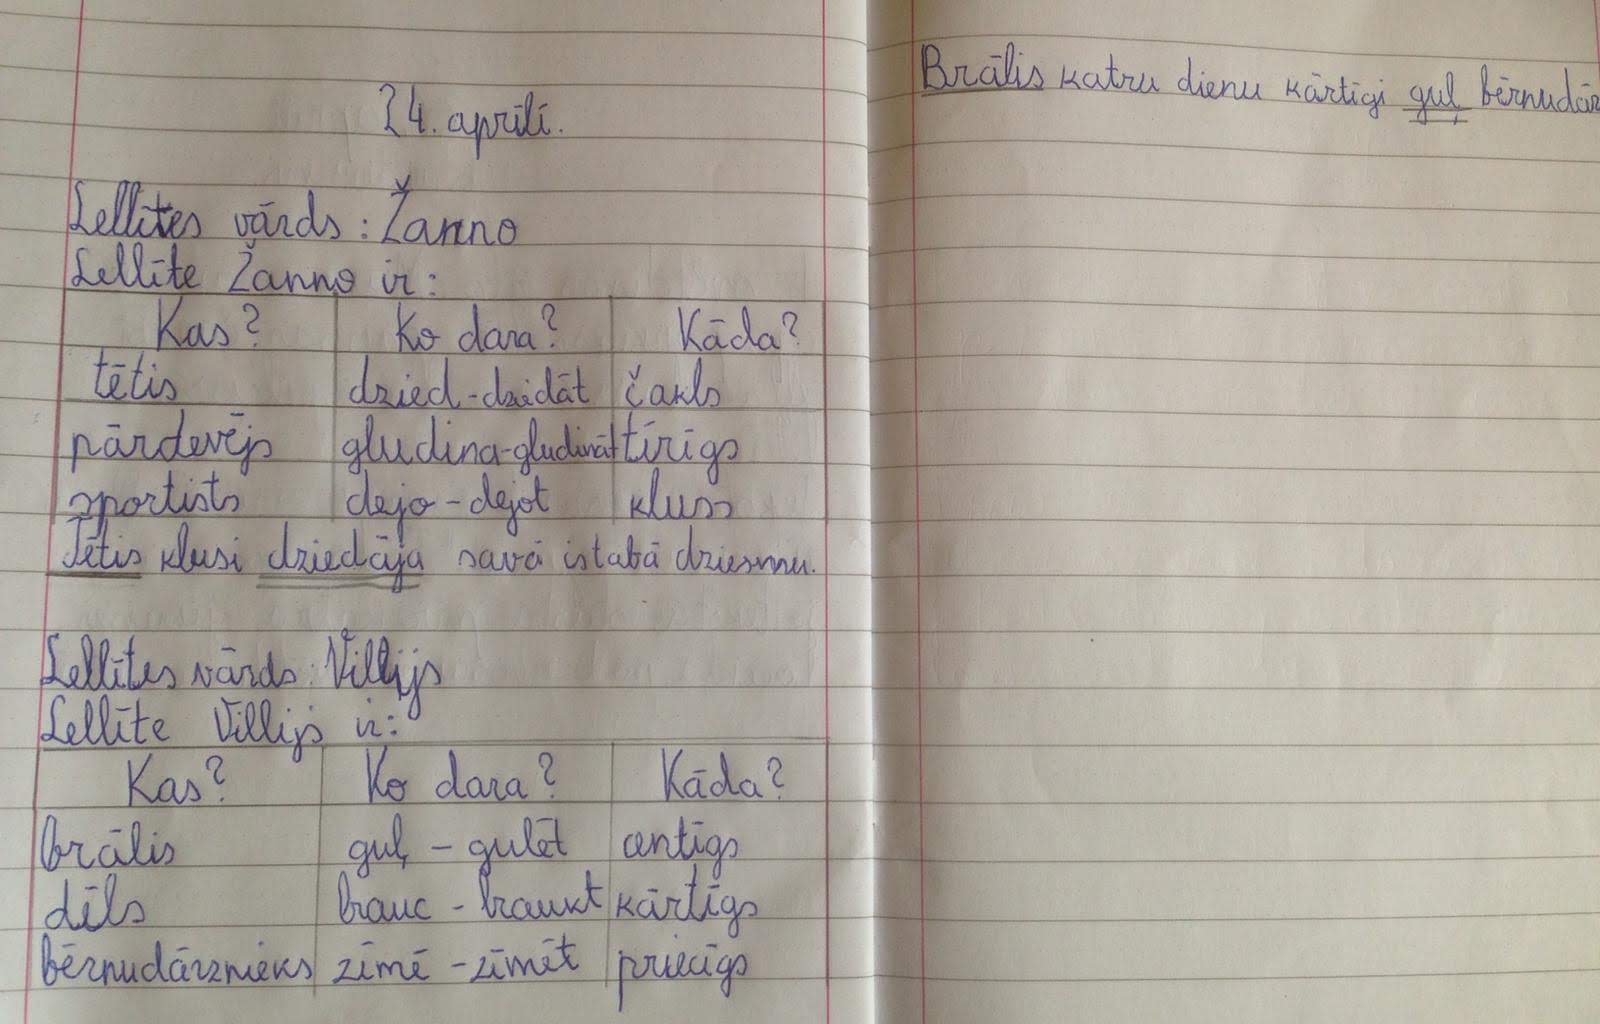 24. aprīlī.
Lellītes vārds: Žanno
Lellīte Žanno ir:
Kas? Ko dara? Kāda?
tētis dzied-dzidāt čakls
pārdevējs gludina-gludināt tīrīgs
sportists dejo-dejot kluss
Tētis klusi dziedāja savā istabā dziesmu.
Lellītes vārds: Villijs
Lellīte Villijs ir:
Kas? Ko dara? Kāda?
brālis guļ - gulēt centīgs
dēls brauc - braukt kārtīgs
bērnudārznieks zīmē - zīmēt priecīgs
Brālis katru dienu kārtīgi guļ bērnudār